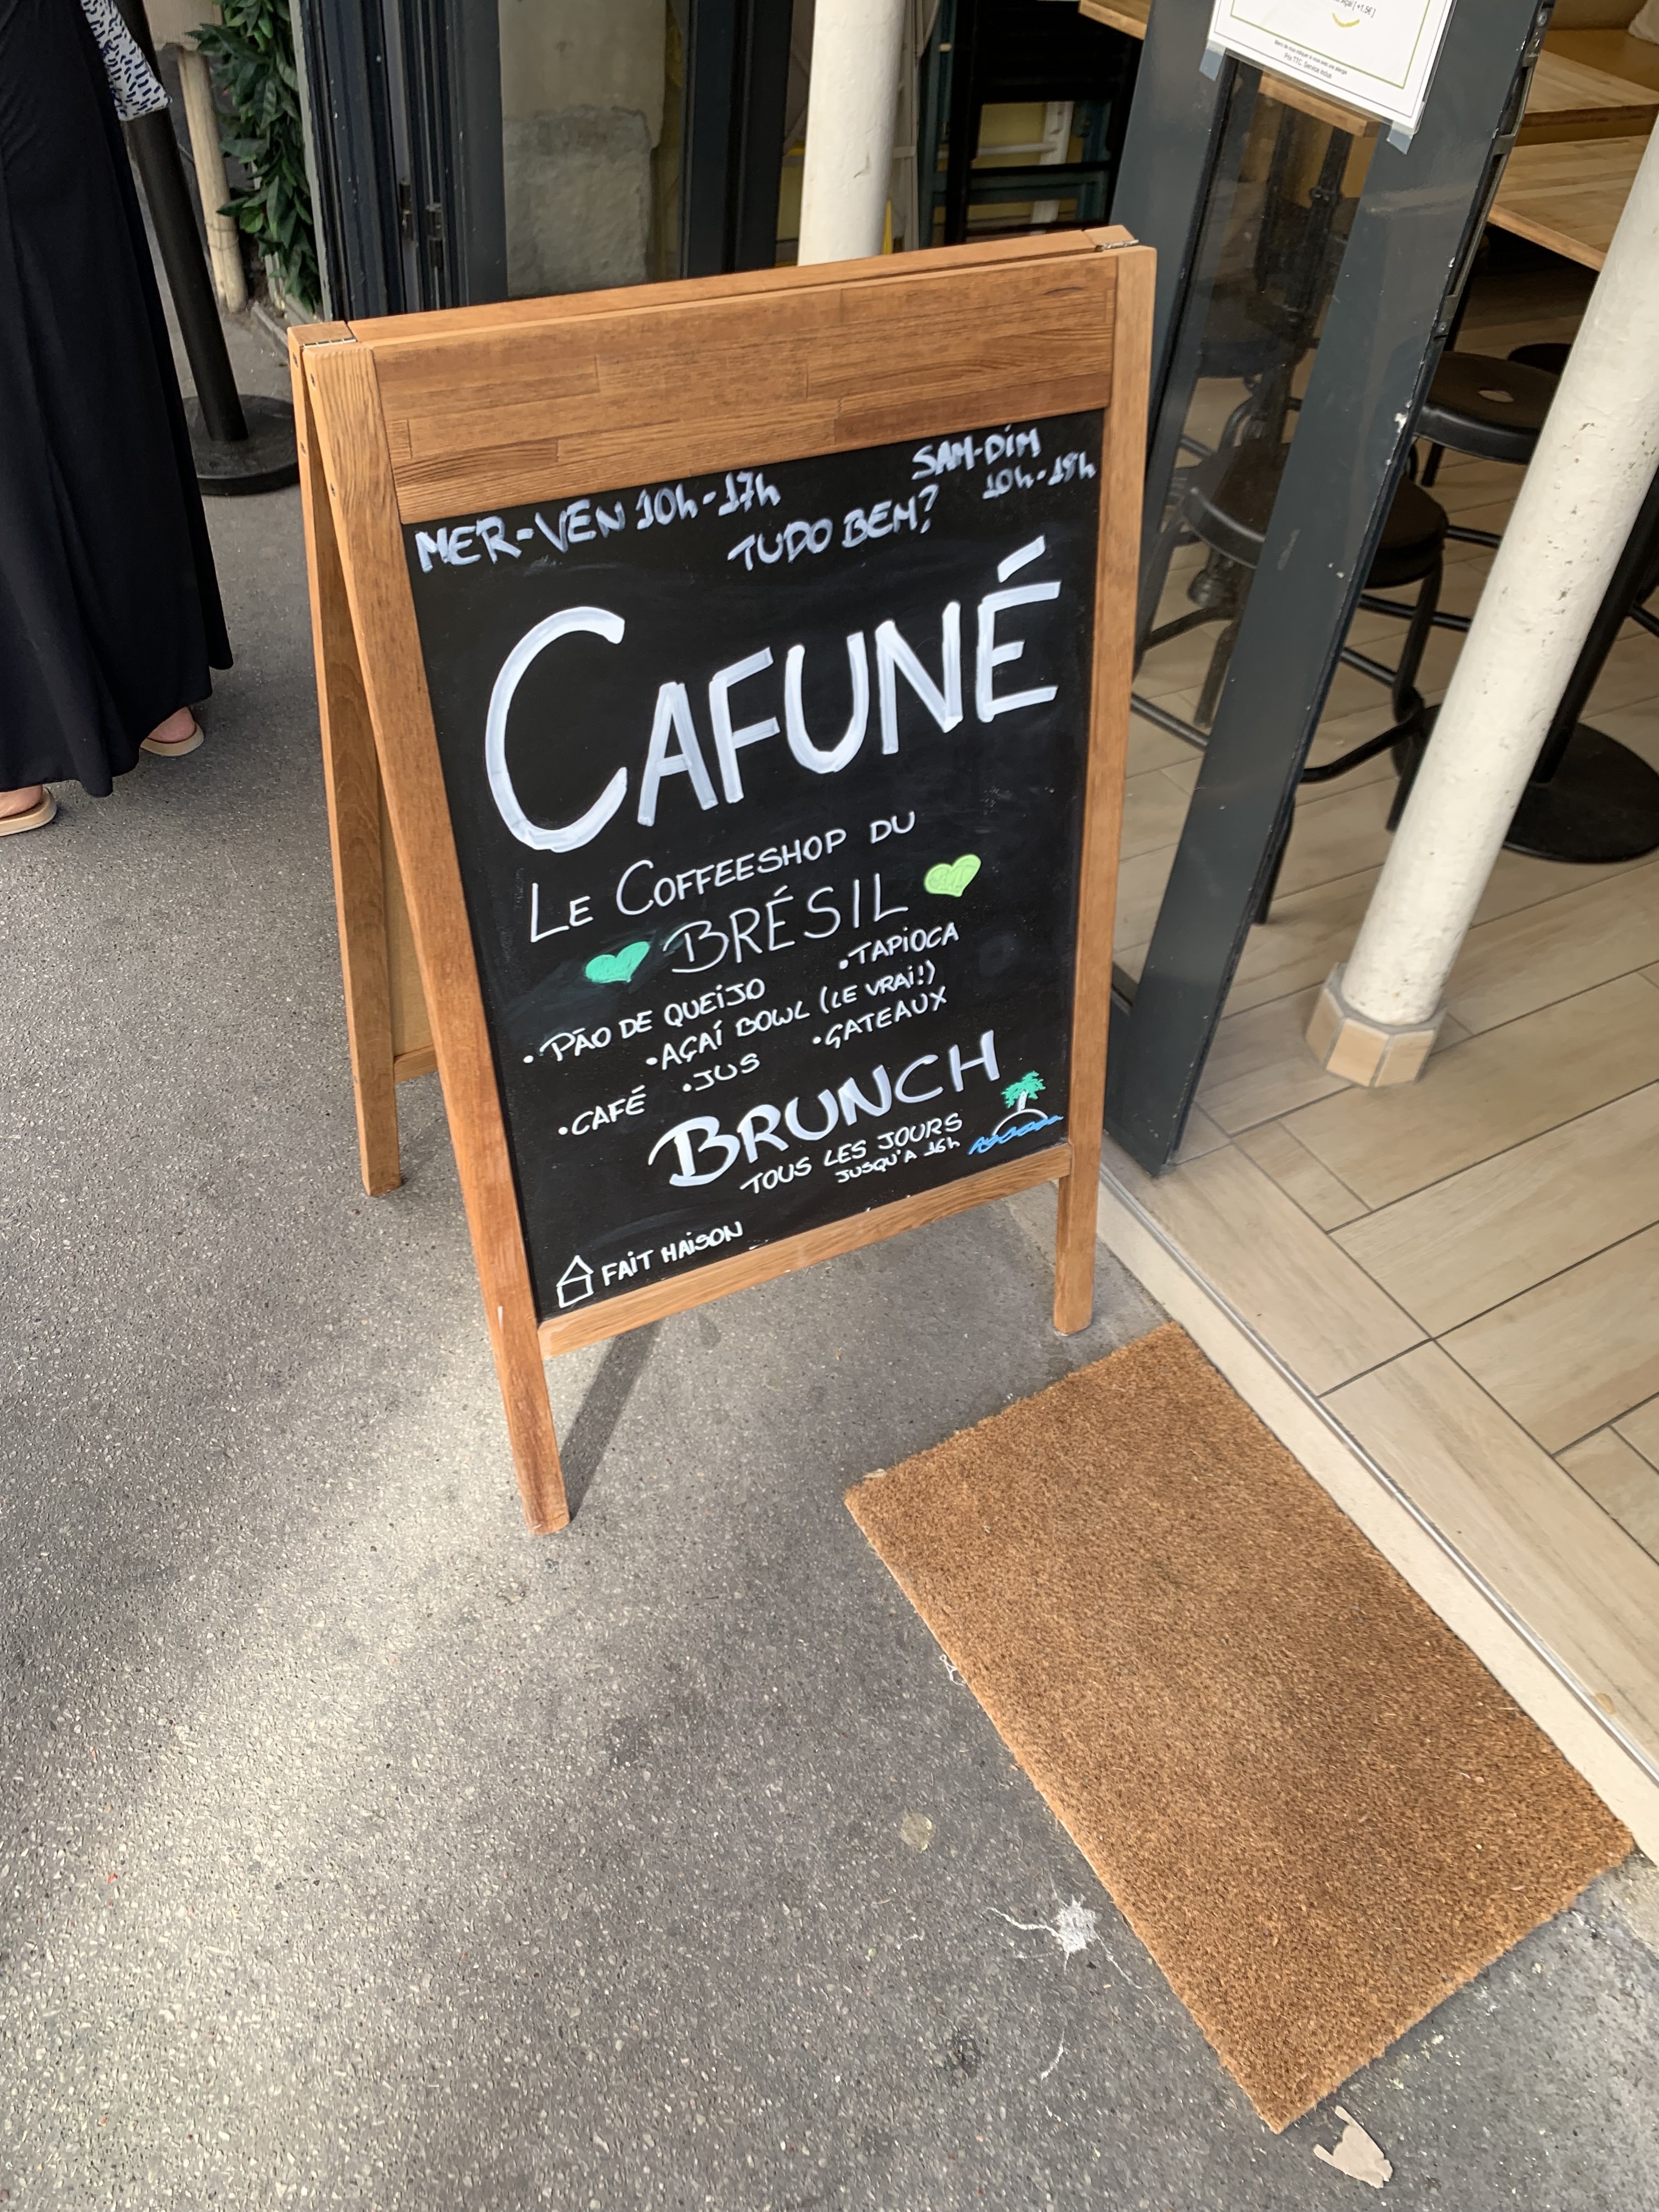 MER-VEN 10h-17h
SAM-DIM
10h-18h
TUDO BEM?
CAFUNÉ
LE COFFEESHOP DU
BRÉSIL
•PÃO DE QUEIJO •TAPIOCA
•AÇAÍ BOWL (LE VRAI!)
•CAFÉ •JUS •GATEAUX
BRUNCH
TOUS LES JOURS
JUSQU'A 16h
FAIT MAISON
Prix TTC. Service inclus